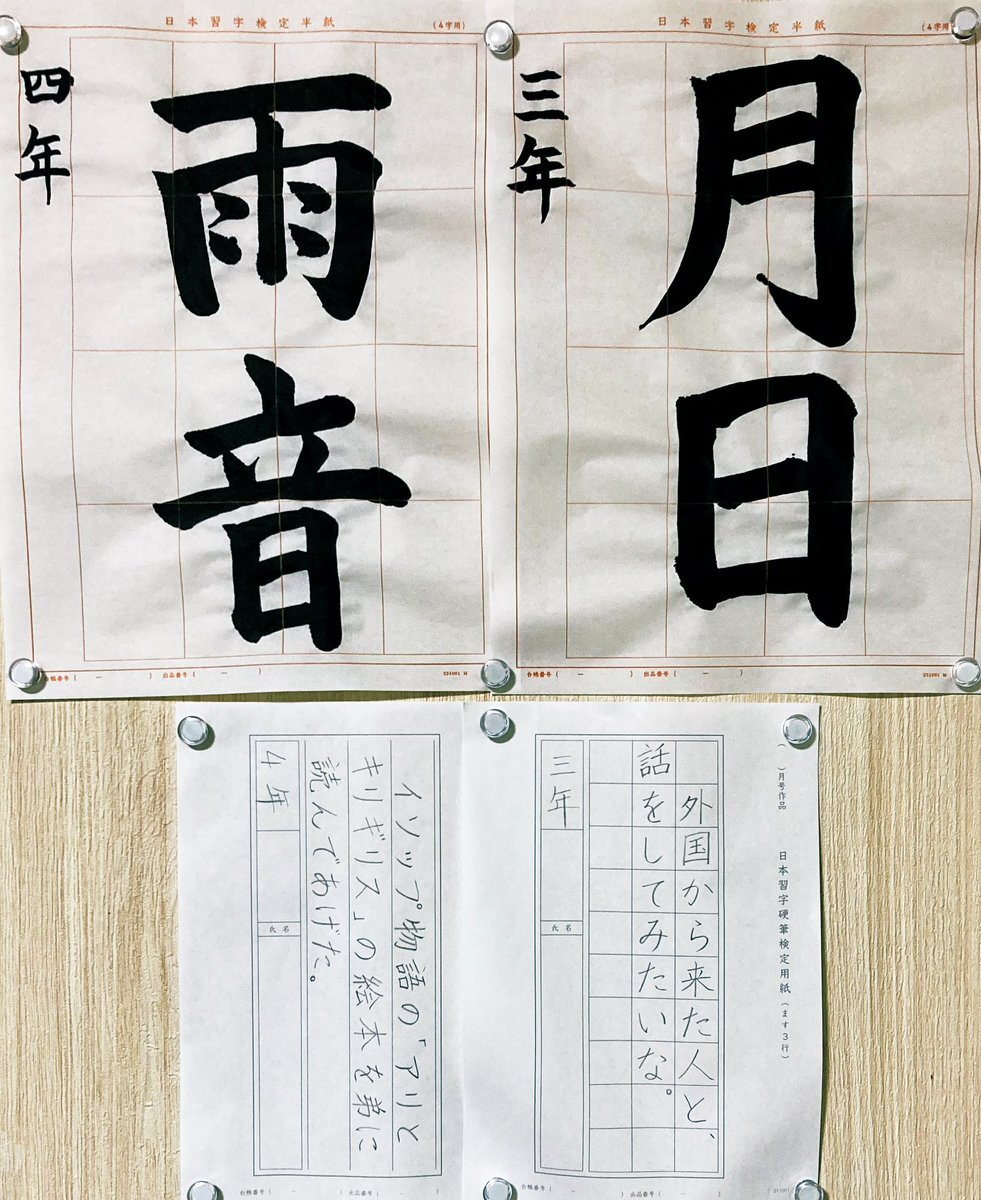 日本習字検定半紙
(4字用)
月日
三年
台帳番号( － )
出品番号( － )
231001 M
日本習字検定半紙
(4字用)
雨音
四年
台帳番号( － )
出品番号( － )
231001 M
( )月号作品
日本習字硬筆検定用紙(ます3行)
外国から来た人と、
話をしてみたいな。
三年
氏名
台帳番号( － )
出品番号( － )
イソップ物語の「アリと
キリギリス」の絵本を弟に
読んであげた。
4年
氏名
台帳番号( － )
出品番号( － )